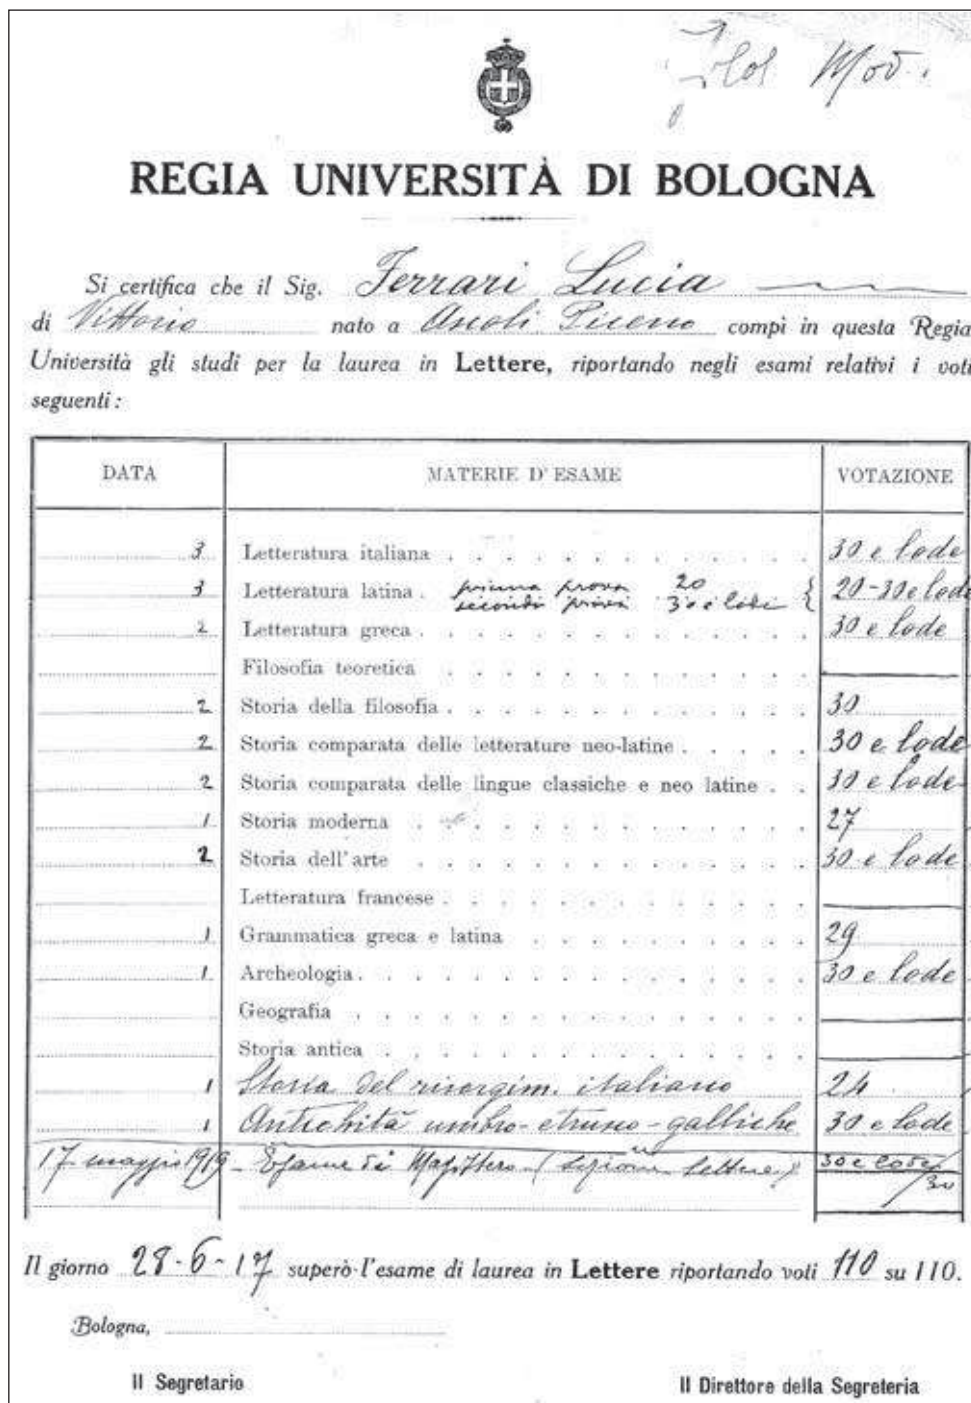 Mod.
REGIA UNIVERSITÀ DI BOLOGNA
Si certifica che il Sig. Ferrari Lucia
di Vittorio nato a Ascoli Piceno compì in questa Regia
Università gli studi per la laurea in Lettere, riportando negli esami relativi i voti
seguenti:
DATA MATERIE D'ESAME VOTAZIONE
3 Letteratura italiana 30 e lode
3 Letteratura latina. prima prova 20 20-30 e lode
seconda prova 30 e lode
2 Letteratura greca 30 e lode
Filosofia teoretica
2 Storia della filosofia 30
2 Storia comparata delle letterature neo-latine 30 e lode
2 Storia comparata delle lingue classiche e neo latine 30 e lode
1 Storia moderna 27
2 Storia dell'arte 30 e lode
Letteratura francese
1 Grammatica greca e latina 29
1 Archeologia 30 e lode
Geografia
Storia antica
1 Storia del risorgim. italiano 24
1 Antichità umbro-etrusco-galliche 30 e lode
17 maggio 1919 - Esame di Magistero (sezione lettere) 30 e lode/30
Il giorno 28-6-17 superò l'esame di laurea in Lettere riportando voti 110 su 110.
Bologna,
Il Segretario Il Direttore della Segreteria